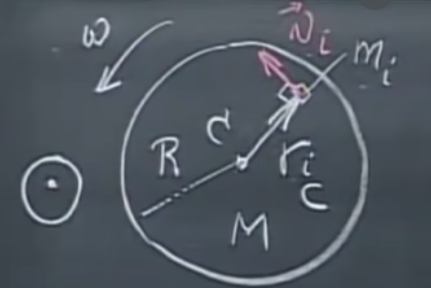 ω
v⃗ᵢ
mᵢ
C
R
rᵢ
C
M